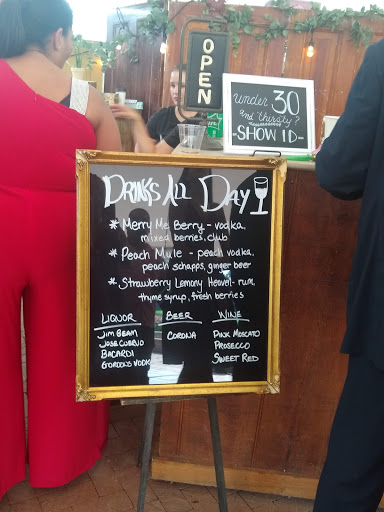 OPEN
under 30
and thirsty?
-SHOW ID-
DRINKS ALL DAY
* Merry Me Berry - vodka,
mixed berries, club
* Peach Mule - peach vodka,
peach schapps, ginger beer
* Strawberry Lemony Heaven - rum,
thyme syrup, fresh berries
LIQUOR
JIM BEAM
JOSE CUERVO
BACARDI
GORDONS VODKA
BEER
CORONA
WINE
PINK MOSCATO
PROSECCO
SWEET RED